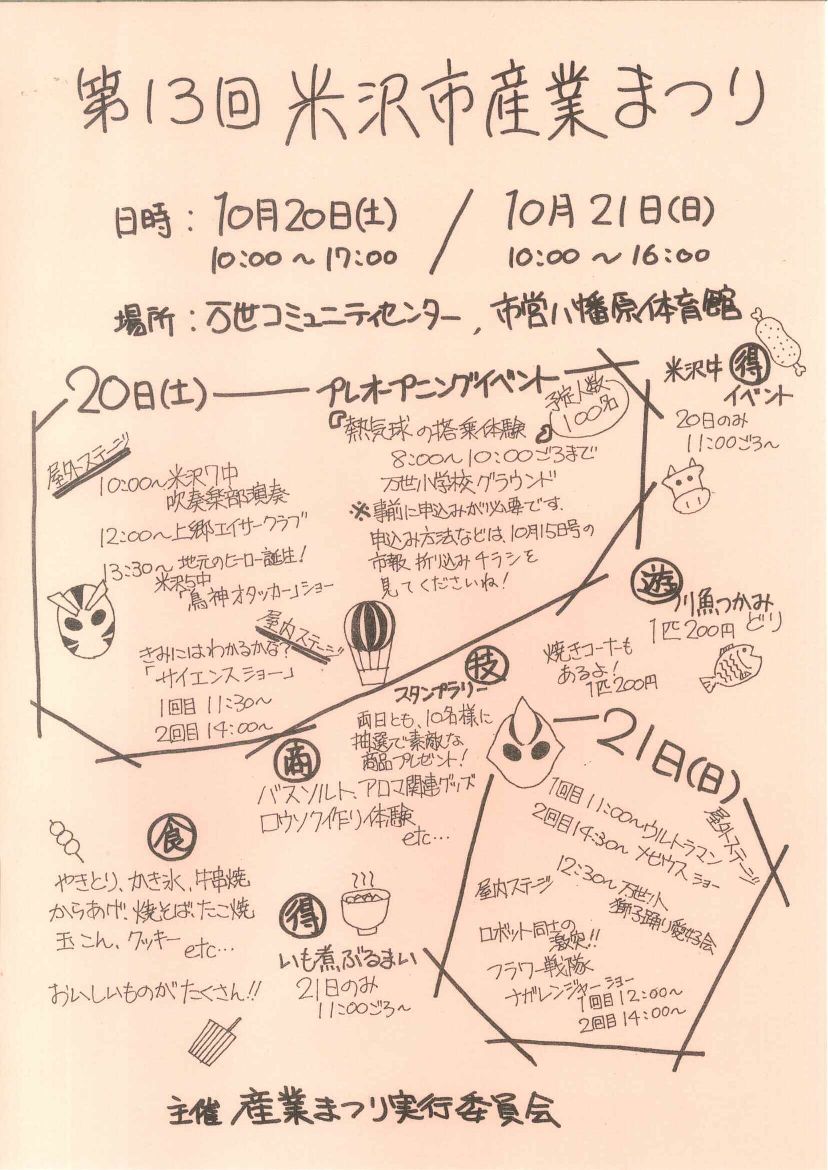 第13回 米沢市産業まつり
日時：10月20日(土) / 10月21日(日)
10:00～17:00 10:00～16:00
場所：万世コミュニティセンター, 市営八幡原体育館
20日(土) プレオープニングイベント
『熱気球の搭乗体験』
予定人数
100名
8:00～10:00ごろまで
万世小学校グラウンド
※事前に申込みが必要です.
申込み方法などは、10月15日号の
市報折り込みチラシを
見てくださいね!
屋外ステージ
10:00～米沢7中
吹奏楽部演奏
12:00～上郷エイサークラブ
13:30～地元のヒーロー誕生!
米沢5中
「鳥神オタッカー」ショー
屋内ステージ
きみにはわかるかな?
「サイエンスショー」
1回目 11:30～
2回目 14:00～
米沢牛 得
イベント
20日のみ
11:00ごろ～
遊
川魚つかみ
どり
1匹200円
焼きコーナーも
あるよ!
1匹200円
技
スタンプラリー
両日とも、10名様に
抽選で素敵な
商品プレゼント!
商
バスソルト、アロマ関連グッズ
ロウソク作り体験
etc…
食
やきとり、かき氷、牛串焼
からあげ、焼そば、たこ焼
玉こん、クッキー
etc…
おいしいものがたくさん!!
得
いも煮ぶるまい
21日のみ
11:00ごろ～
21日(日)
屋外ステージ
1回目 11:00～ウルトラマン
2回目 14:30～メビウスショー
12:30～万世
獅子踊り愛好会
屋内ステージ
ロボット同士の
激突!!
フラワー戦隊
ナガレンジャーショー
1回目 12:00～
2回目 14:00～
主催 産業まつり実行委員会